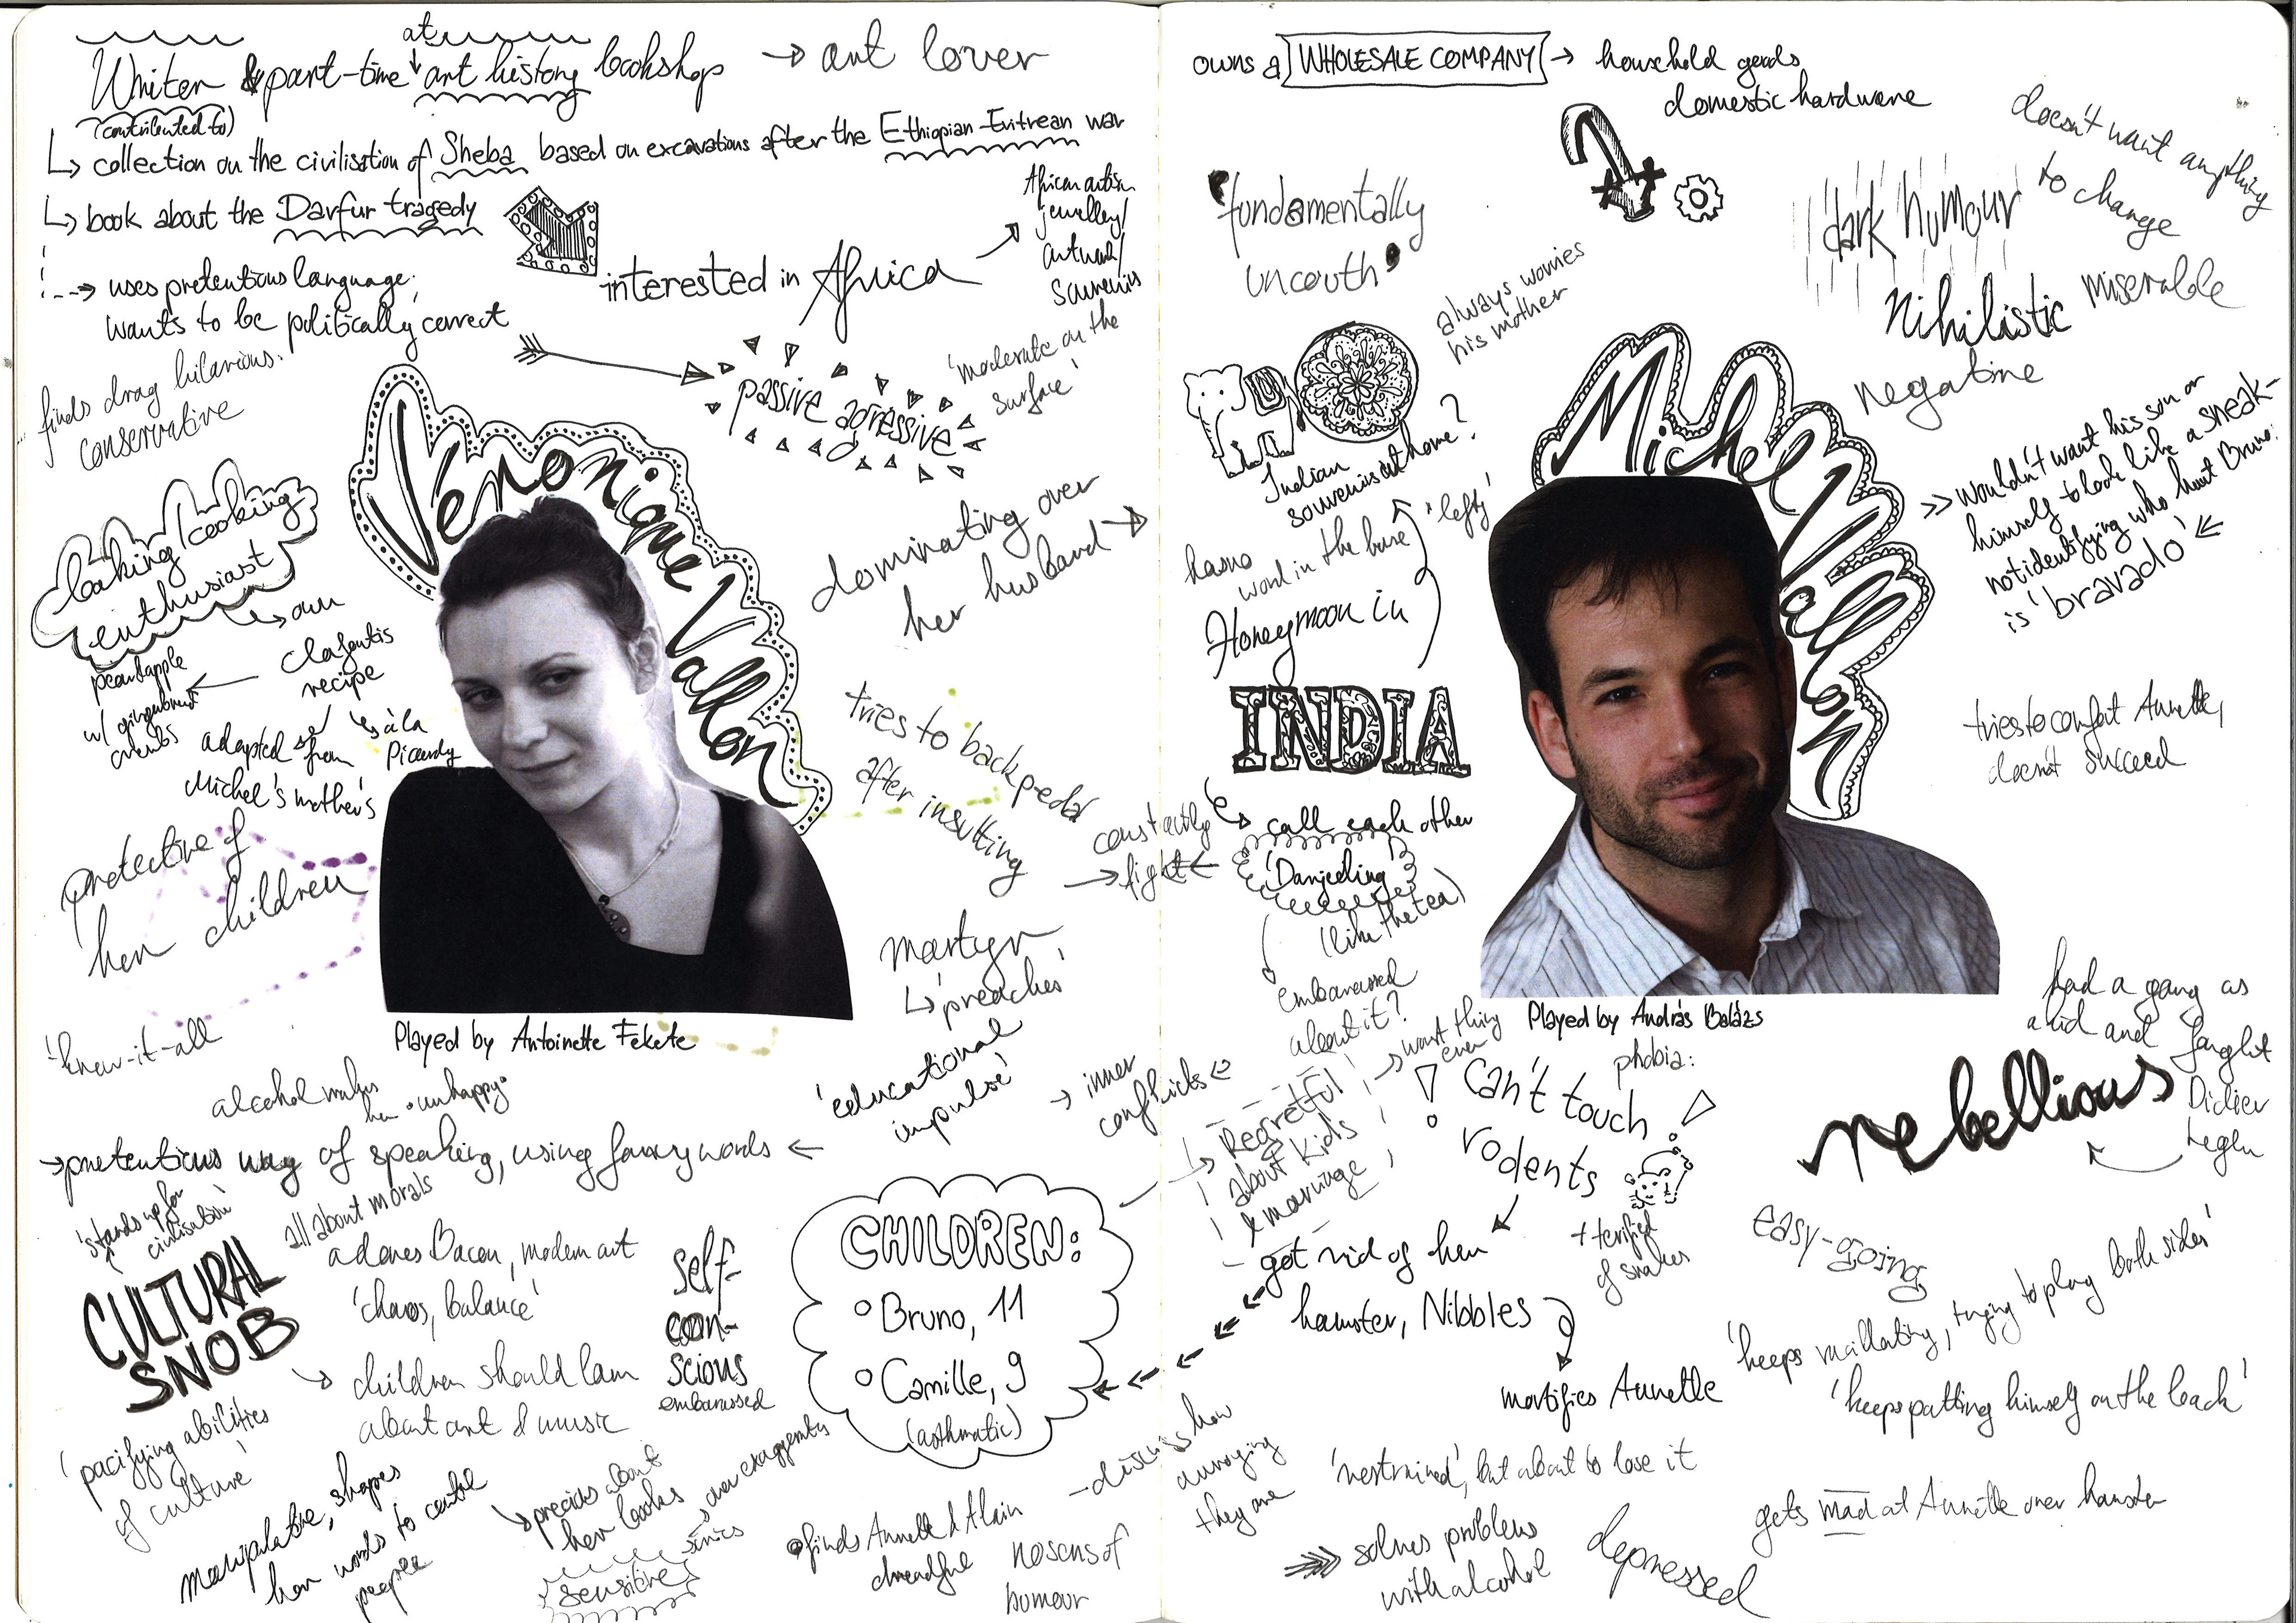 Writer & part-time at art history bookshop → art lover
(contributed to)
↳ collection on the civilisation of Sheba based on excavations after the Ethiopian-Eritrean war
↳ book about the Darfur tragedy
→ uses pretentious language;
wants to be politically correct
interested in Africa →
African artism
jewellery/
artwork/
souvenirs
finds drag hilarious.
conservative
passive agressive
'moderate on the
surface'
Véronique Vallon
baking/cooking
enthusiast
↳ own
clafoutis
recipe
pear & apple
w/ gingerbread
crumbs
à la
Picardy
adapted from
Michel's mother's
dominating over
her husband →
tries to backpedal
after insulting
protective of
her children
martyr
↳ 'preaches'
'educational
impulse'
Played by Antoinette Fekete
'know-it-all
alcohol makes
her 'unhappy'
→ pretentious way of speaking, using fancy words ←
'stands up for
civilisation'
all about morals
CULTURAL
SNOB
adores Bacon, modern art
'chaos, balance'
children should learn
about art & music
self-
con-
scious
embarassed
'pacifying abilities
of culture'
manipulative, shapes
her words to control
people
precious about
her books
over exaggerates
sensitive
CHILDREN:
Bruno, 11
Camille, 9
(asthmatic)
finds Annette & Alain
dreadful
no sens of
humour
constantly
→ fight ←
→ inner
conflicts ←
- discuss how
annoying
they are
owns a WHOLESALE COMPANY → household goods
domestic hardware
'fundamentally
uncouth'
doesn't want anything
to change
dark humour
nihilistic
miserable
negative
always worries
his mother
Indian
souvenirs at home?
'lefty'
has no
word in the
Honeymoon in
INDIA
↳ call each other
'Darjeeling'
(like the tea)
embarassed
about it?
Michel Vallon
>> wouldn't want his son or
himself to look like a sneak -
not identifying who hurt Bruno
is 'bravado'
tries to comfort Annette,
doesn't succeed
Played by András Balázs
had a gang as
a kid and fought
Didier
Leglu
rebellious
phobia:
! Can't touch !
rodents
+ terrified
of snakes
→ worst thing
ever
Regretful
about kids
& marriage
got rid of her
hamster, Nibbles
mortifies Annette
easy-going
'keeps vacillating, trying to play both sides'
'keeps patting himself on the back'
'restrained', but about to lose it
gets mad at Annette over hamster
solves problems
with alcohol
depressed